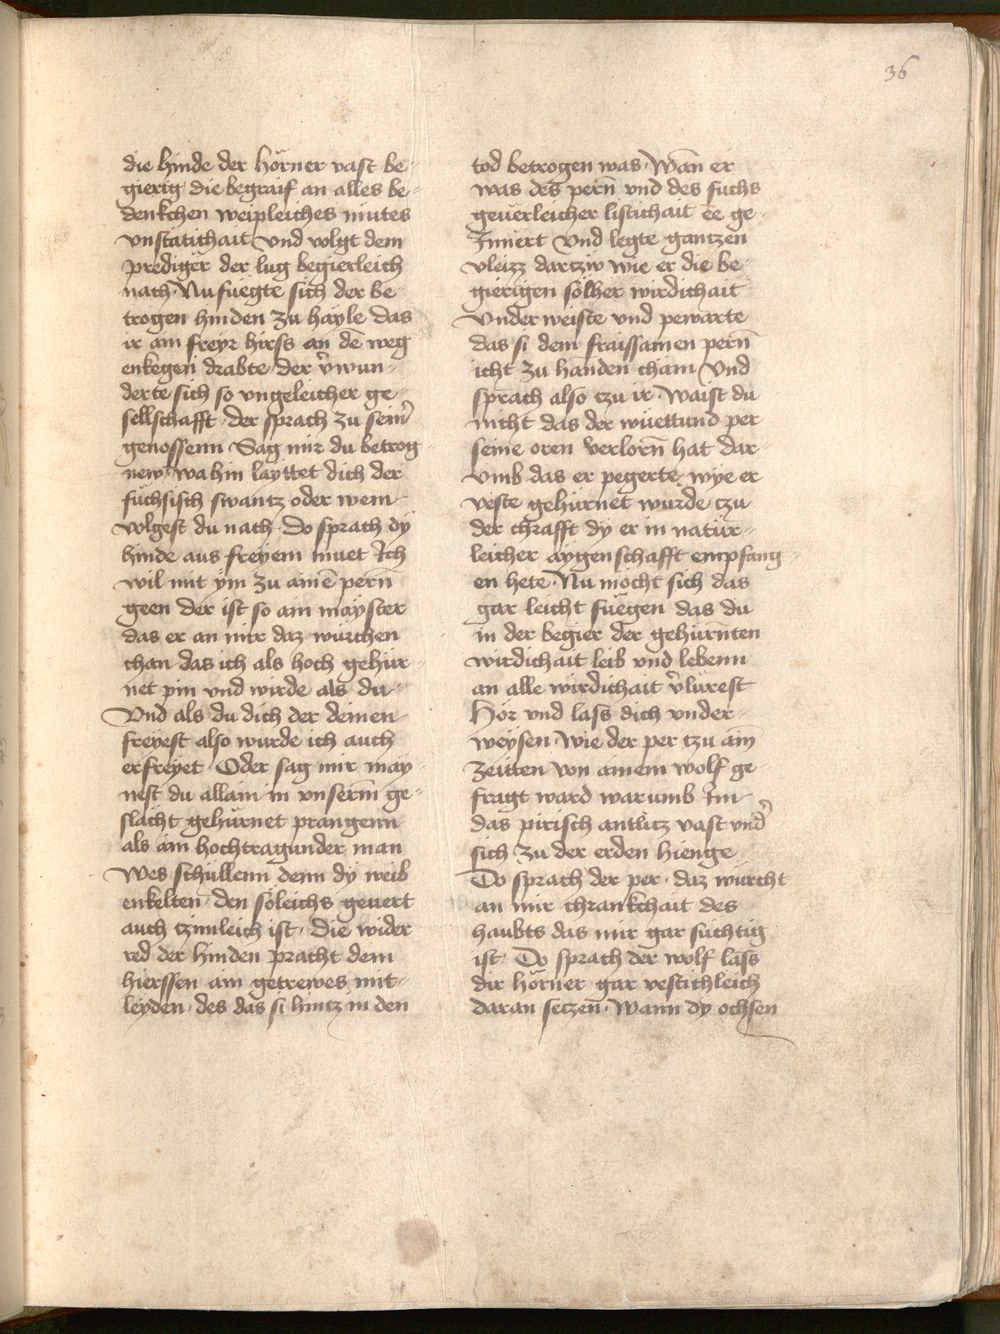 36
die hinde der hörner vast be-
gierig die begraif an alles be-
denkchen weipleiches mutes
vnstätichait Vnd volgt dem
prediger der lug begierleich
nach · Nu fuegte sich der be-
trogen hinden zu hayle das
ir ain freyr hirss an dē weg
enkegen drabte der v̾wun-
derte sich so vngeleicher ge-
sellschafft · der sprach zu sein̾
genossenn Sag mir du betrog-
new wahin layttet dich der
füchsisch swantz oder wem
volgest du nach · Do sprach dy
hinde aus freyem muet Ich
wil mit ym zu aine pern̄
geen der ist so ain mayster
das er an mir daz würchen
chan das ich als hoch gehür-
net pin vnd wirde als du
Vnd als du dich der deinen
freyest also wurde ich auch
erfreyet · Oder sag mir may-
nest du allain in vnserm̄ ge-
slächt gehürnet prangenn
als ain hochtragunder man
Wes schullenn denn dy weib
enkelten · den söleichs geuert
auch tzimleich ist · Die wider
red der hinden pracht dem
hierssen ain getrewes mit-
leyden · des das si hintz in den
tod betrogen was · Wān er
was des pern̄ vnd des fuchs
geuerleicher listichait ee ge-
Innert Vnd legte gantzen
vleizz dartzw wie er die be-
gierigen solher wirdichait
Vnder weiste vnd pewarte
das si dem fraissamen pern̄
icht zu handen cham Vnd
sprach also tzu ir · Waist du
nicht das der wüettund per
seine oren verlorn̄ hat dar-
vmb das er pegerte wye er
veste gehürnet wurde tzu
der chrafft dy er in natür-
leicher aygenschafft empfang-
en hete · Nu möcht sich das
gar leicht fuegen das du
in der begier der gehürnten
wirdichait leib vnd lebenn
an alle wirdichait v̾lurest
Hör vnd lass dich vnder-
weysen · Wie der per tzu ain
zeitten von ainem wolf ge-
fragt ward warumb Im
das pirisch antlitz vast vnd̾
sich zu der erden hienge
Do sprach der per · daz würcht
an mir chrankchait des
haubts das mir gar süchtig
ist · Do sprach der wolf lass
dir hörner gar vestichleich
daran setzen̄ · Wann dy ochsen